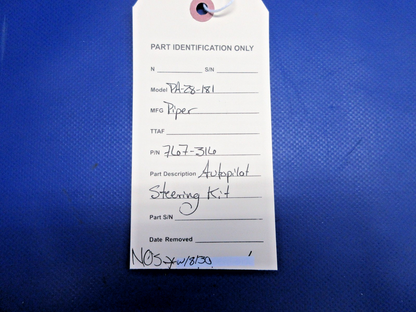 PART IDENTIFICATION ONLY
N S/N
Model PA-28-181
MFG Piper
TTAF
P/N 767-316
Part Description Autopilot
Steering Kit
Part S/N
Date Removed
NOS